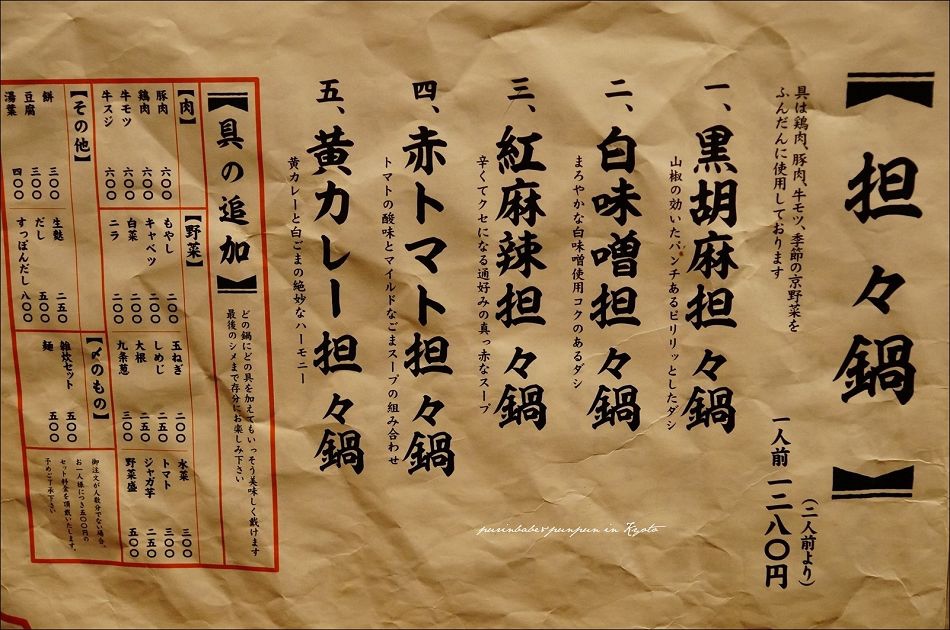 担々鍋
具は鶏肉、豚肉、牛モツ、季節の京野菜を
ふんだんに使用しております
(二人前より)
一人前 一二八〇円
一、黒胡麻担々鍋
山椒の効いたパンチあるピリリッとしたダシ
二、白味噌担々鍋
まろやかな白味噌使用コクのあるダシ
三、紅麻辣担々鍋
辛くてクセになる通好みの真っ赤なスープ
四、赤トマト担々鍋
トマトの酸味とマイルドなごまスープの組み合わせ
五、黄カレー担々鍋
黄カレーと白ごまの絶妙なハーモニー
具の追加
どの鍋にどの具を加えてもいっそう美味しく戴けます
最後のシメまで存分にお楽しみ下さい
【肉】
豚肉 六〇〇
鶏肉 六〇〇
牛モツ 六〇〇
牛スジ 六〇〇
【野菜】
もやし 二〇〇
キャベツ 二〇〇
白菜 二〇〇
ニラ 二〇〇
玉ねぎ 二〇〇
しめじ 二五〇
大根 二五〇
九条葱 三〇〇
水菜 三〇〇
トマト 三〇〇
ジャガ芋 二五〇
野菜盛 五〇〇
【その他】
餅 三〇〇
豆腐 三〇〇
湯葉 四〇〇
生麩 二五〇
だし 五〇〇
すっぽんだし 八〇〇
【〆のもの】
雑炊セット 五〇〇
麺 五〇〇
御注文が人数分でない場合、
お一人様につき五〇〇円の
セット料金を頂戴いたします。
予めご了承下さい
purinbabe&punpun in Kyoto